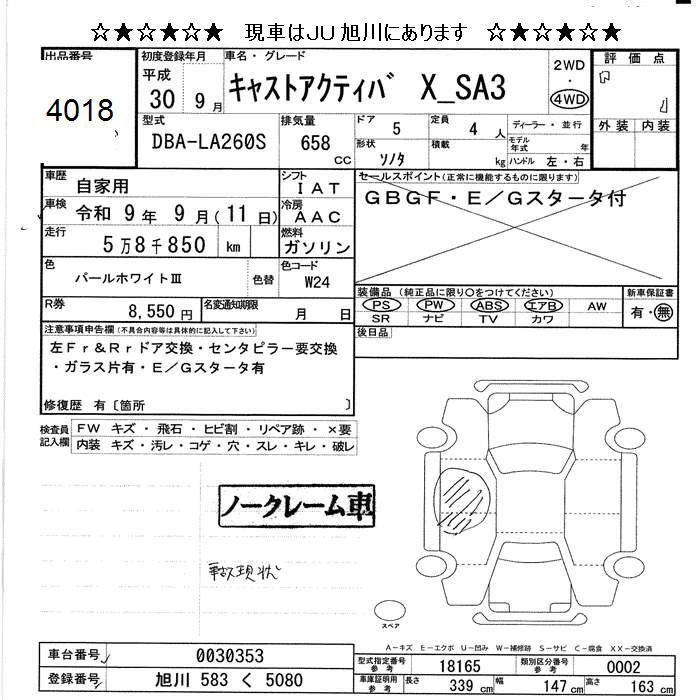 ☆★☆★☆★ 現車はJU旭川にあります ☆★☆★☆★
出品番号
4018
初度登録年月
平成
30年9月
車名・グレード
キャストアクティバ X_SA3
2WD
・
4WD
評価点
外装 内装
型式
DBA-LA260S
排気量
658
cc
ドア 5
定員 4 人
ディーラー・並行
形状 ソノタ
積載 kg
モデル年式 年
ハンドル 左・右
車歴
自家用
シフト
IAT
車検
令和 9年 9月(11日)
冷房
AAC
走行
5万8千850 km
燃料
ガソリン
色
パールホワイトⅢ
色替
色コード
W24
R券
8,550円
名変通知期限
月 日
セールスポイント(正常に機能するものに限ります)
GBGF・E/Gスタータ付
装備品(純正品に限り○をつけてください)
PS PW ABS エアB AW
SR ナビ TV カワ
新車保証書
有・無
後日品
注意事項申告欄(不具合内容等は具体的に記入して下さい)
左Fr&Rrドア交換・センタピラー要交換
・ガラス片有・E/Gスタータ有
修復歴 有〔箇所 〕
検査員記入欄
FW キズ・飛石・ヒビ割・リペア跡・×要
内装 キズ・汚レ・コゲ・穴・スレ・キレ・破レ
ノークレーム車
事故現状
スペア
A-キズ E-エクボ U-凹み W-補修跡 S-サビ C-腐食 XX-交換済
車台番号 0030353
登録番号 旭川 583 く 5080
型式指定番号 参考 18165
類別区分番号 参考 0002
車庫証明用 参考 長さ 339 cm 幅 147 cm 高さ 163 cm